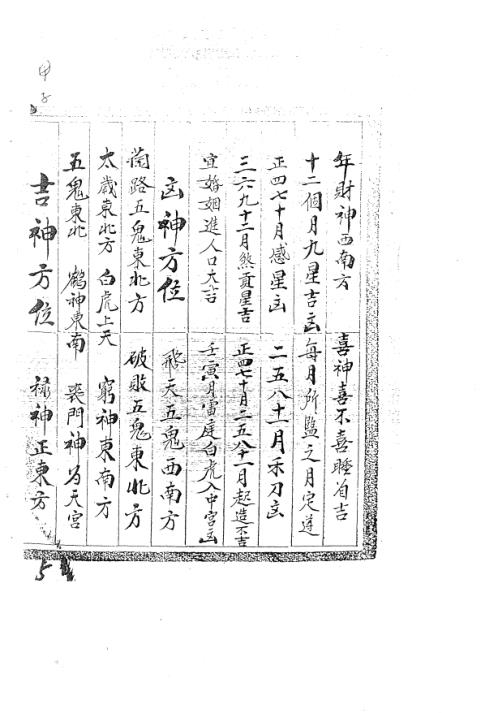 甲子
年財神西南方 喜神喜不喜睡自吉
十二個月九星吉凶 每月所監之月定道
正四七十月惑星凶 二五八十一月禾刀凶
三六九十二月煞貢星吉 正四七十月二五八十一月起造不吉
宜婚姻進人口大吉 壬寅月寅庭白虎入中宮凶
凶神方位 飛天五鬼西南方
蘭路五鬼東北方 破敗五鬼東北方
太歲東北方 白虎上天 窮神東南方
五鬼東北 鶴神東南 喪門神為天宮
吉神方位 祿神正東方
5